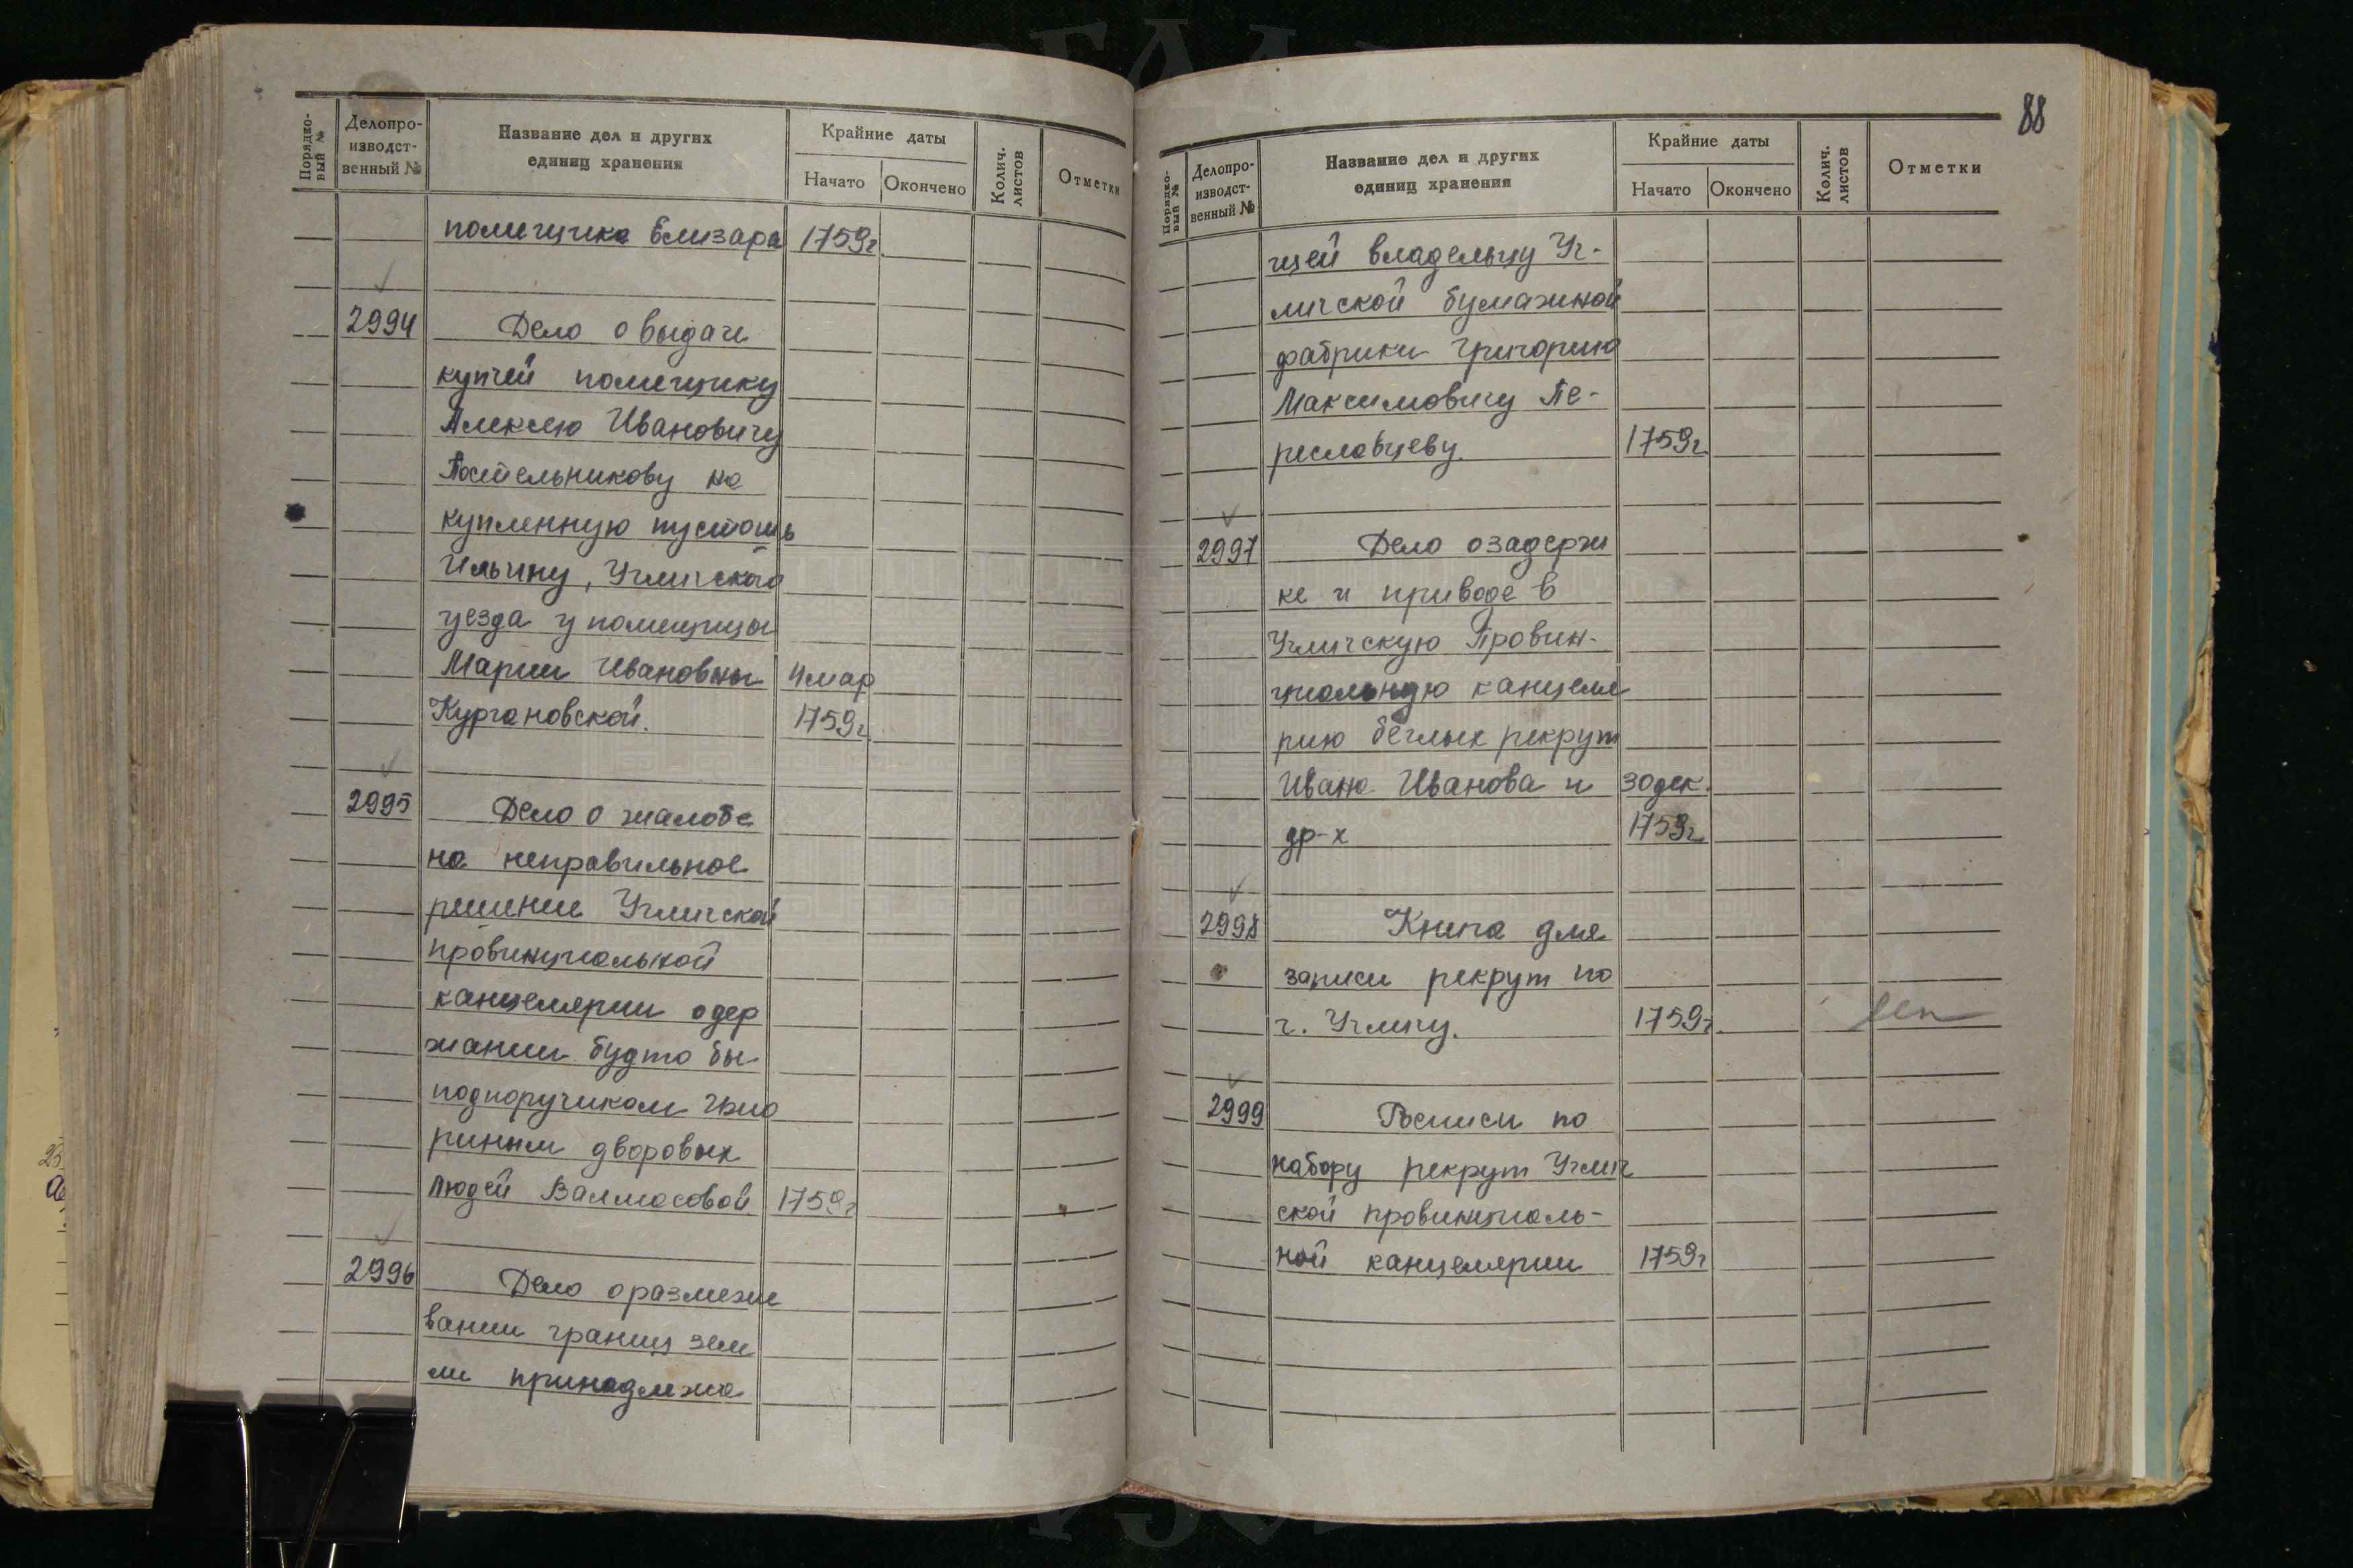 88
Порядко-
вый №
Делопро-
изводст-
венный №
Название дел и других
единиц хранения
Крайние даты
Начато
Окончено
Колич.
листов
Отметки
помещика Елизара 1759г.
2994 Дело о выдаче
купчей помещику
Алексею Ивановичу
Постельникову на
купленную пустошь
Ильину, Угличского
уезда у помещицы
Марии Ивановны 4 мар
Кургановской. 1759г.
2995 Дело о жалобе
на неправильное
решение Угличской
провинциальной
канцелярии о дер
жании будто бы
подпоручиком
риным дворовых
людей Валмасовой 1759г
2996 Дело о размеже
вании границ зем
ли принадлежа
Порядко-
вый №
Делопро-
изводст-
венный №
Название дел и других
единиц хранения
Крайние даты
Начато
Окончено
Колич.
листов
Отметки
щей владельцу Уг-
личской бумажной
фабрики Григорию
Максимовичу Пе-
реславцеву. 1759г.
2997 Дело о задерж
ке и приводе в
Угличскую Провин-
циальную канцеля
рию беглых рекрут
Ивана Иванова и 30 дек.
др-х 1759г.
2998 Книга для
записи рекрут по
г. Угличу. 1759г.
2999 Росписи по
набору рекрут Углич
ской провинциаль-
ной канцелярии 1759г